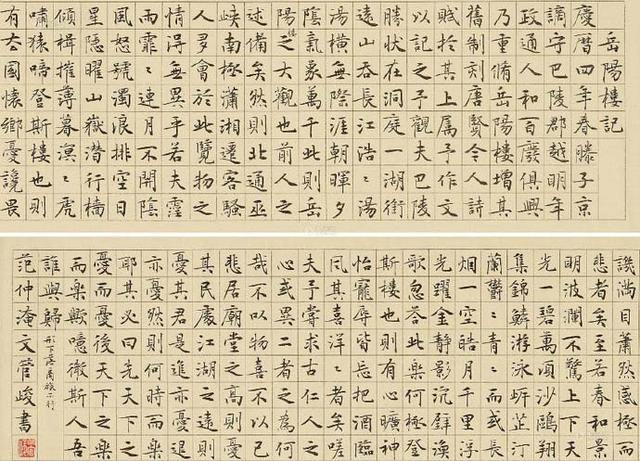 岳陽樓記
慶曆四年春滕子京
謫守巴陵郡越明年
政通人和百廢俱興
乃重脩岳陽樓增其
舊制刻唐賢今人詩
賦於其上属予作文
以記之予觀夫巴陵
勝狀在洞庭一湖銜
遠山吞長江浩〻湯
湯橫無際涯朝暉夕
陰氣象萬千此則岳
陽樓之大觀也前人之
述備矣然則北通巫
峽南極瀟湘遷客騷
人多會於此覽物之
情得無異乎若夫霪
雨霏〻連月不開陰
風怒號濁浪排空日
星隱曜山嶽潛行檣
傾楫摧薄暮溟〻虎
嘯猿啼登斯樓也則
有去國懷鄉憂讒畏
譏滿目蕭然感極而
悲者矣至若春和景
明波瀾不驚上下天
光一碧萬頃沙鷗翔
集錦鱗游泳岸芷汀
蘭鬱〻青〻而或長
烟一空皓月千里浮
光耀金靜影沉璧漁
歌忽答此樂何極登
斯樓也則有心曠神
怡寵辱皆忘把酒臨
風其喜洋〻者矣嗟
夫予嘗求古仁人之
心或異二者之為何
哉不以物喜不以己
悲居廟堂之高則憂
其民處江湖之遠則
憂其君是進亦憂退
亦憂然則何時而樂
耶其必曰先天下之
憂而憂後天下之樂
而樂歟噫微斯人吾
誰與歸
范仲淹文管峻書